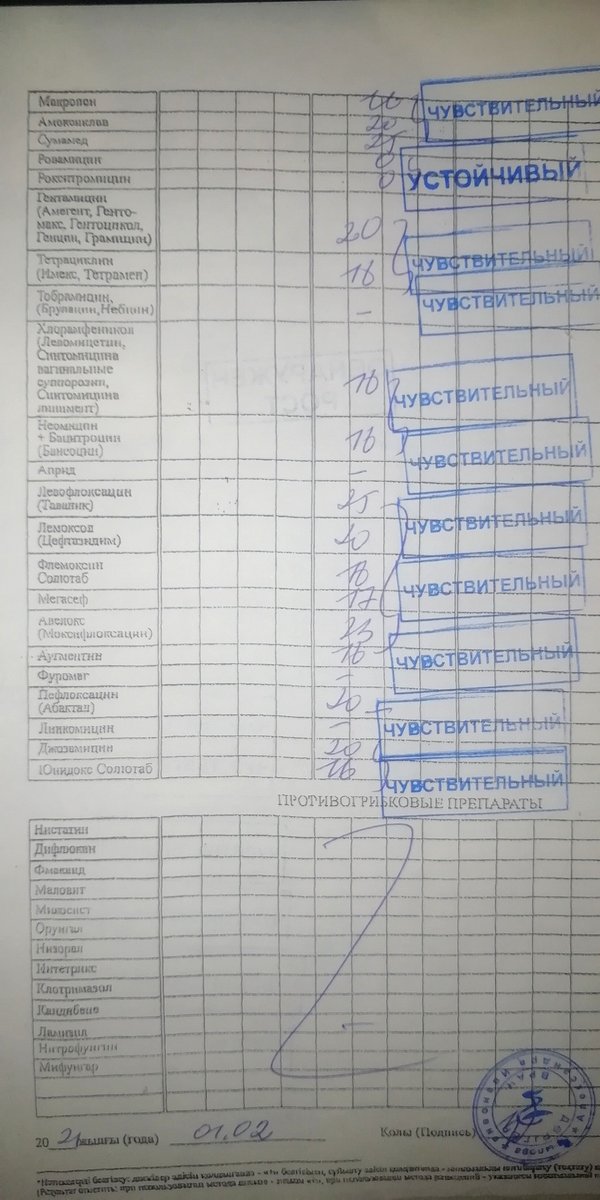 Макропен 16 ЧУВСТВИТЕЛЬНЫЙ
Амоксиклав 20
Сумамед 25
Ровамицин 0 УСТОЙЧИВЫЙ
Рокситромицин 0
Гентамицин
(Амегент, Генто-
макс, Гентоцикол,
Генцин, Грамицин) 20 ЧУВСТВИТЕЛЬНЫЙ
Тетрациклин
(Имекс, Тетрамеп) 16
Тобрамицин, ЧУВСТВИТЕЛЬНЫЙ
(Брулацин, Небцин) –
Хлорамфеникол
(Левомицетин,
Синтомицина
вагинальные
суппозории, 16 ЧУВСТВИТЕЛЬНЫЙ
Синтомицина
линимент)
Неомицин
+ Бацитроцин 16 ЧУВСТВИТЕЛЬНЫЙ
(Банеоцин)
Априд –
Левофлоксацин 25
(Таваник) ЧУВСТВИТЕЛЬНЫЙ
Лемоксол 20
(Цефтазидим)
Флемоксин 18
Солютаб ЧУВСТВИТЕЛЬНЫЙ
Мегасеф 17
Авелокс 23
(Моксифлоксацин)
Аугментин 16 ЧУВСТВИТЕЛЬНЫЙ
Фуромаг –
Пефлоксацин 20
(Абактал)
Линкомицин – ЧУВСТВИТЕЛЬНЫЙ
Джозамицин 20
Юнидокс Солютаб 16 ЧУВСТВИТЕЛЬНЫЙ
ПРОТИВОГРИБКОВЫЕ ПРЕПАРАТЫ
Нистатин
Дифлюкан
Маловит
Микосист
Орунгал
Низорал
Интетрикс
Клотримазол
Кандибене
Ламизил –
Нитрофунгин
Мифунгар
20 21 жылғы (года) 01.02 Қолы (Подпись)